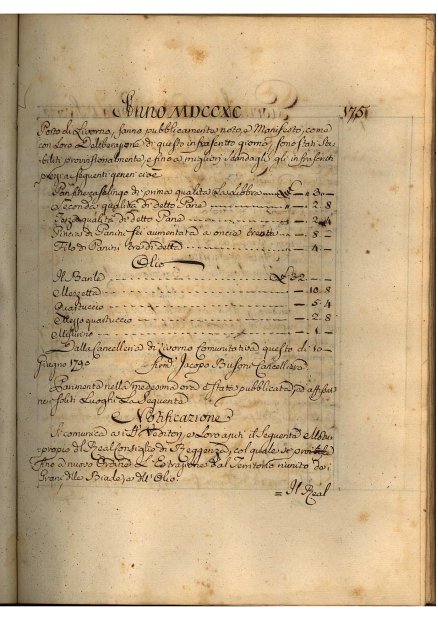 Anno MDCCXC 175
Porto di Livorno, fanno pubblicamente noto, e Manifesto, come
con Loro Deliberazione di questo infrascritto giorno, sono stati sta-
biliti provvisionalmente, e fino a migliori scandagli gl'infrascritti
prezzi a seguenti generi cioè
Pan di prima qualità la Libbra
Seconda qualità di detto Pane 2 8
Terza qualità di detto Pane 2
Piccia di Panini sei aumentata a oncie 8
Filo di Panini di detta 4
Olio
Il Barile 32
Mezzetta 10 8
Quartuccio 5 4
Mezzo quartuccio 2 8
Misurino 1
Dalla Cancelleria di Livorno Comunitativa questo dì 10
Giugno 1790 Jacopo Cancelliere
Parimente nella medesima ora è stata pubblicata, ed affissa
ne' soliti Luoghi La Seguente
Notificazione
Si comunica a i e Loro il Seguente Motu-
proprio del Real Consiglio di Reggenza, col quale si
fino a nuovo Ordine L'Estrazione dal Territorio riunito dei
Grani, delle Biade, e dell'Olio
= Il Real